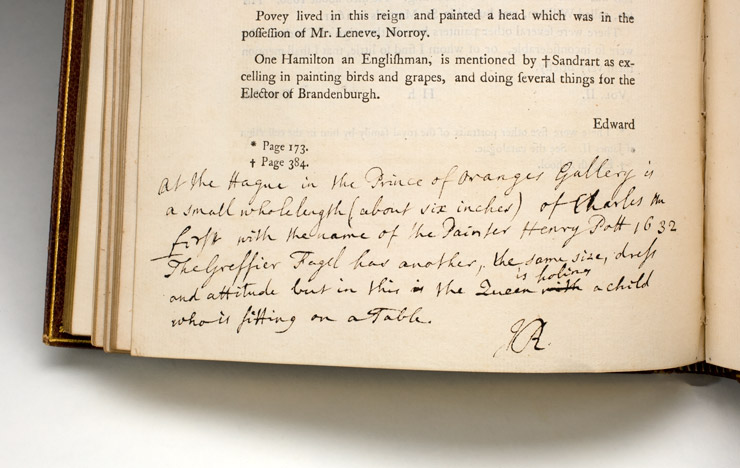 Povey lived in this reign and painted a head which was in the
poſſeſſion of Mr. Leneve, Norroy.
One Hamilton an Engliſhman, is mentioned by † Sandrart as ex-
celling in painting birds and grapes, and doing ſeveral things for the
Elector of Brandenburgh.
Edward
* Page 173.
† Page 384.
at the Hague in the Prince of Oranges Gallery is
a small whole length (about six inches) of Charles the
firſt with the name of the Painter Henry Pott 1632
The Greffier Fagel has another, the same size, dreſs
and attitude but in this is the Queen with is holing a child
who is ſitting on a Table.
JR.